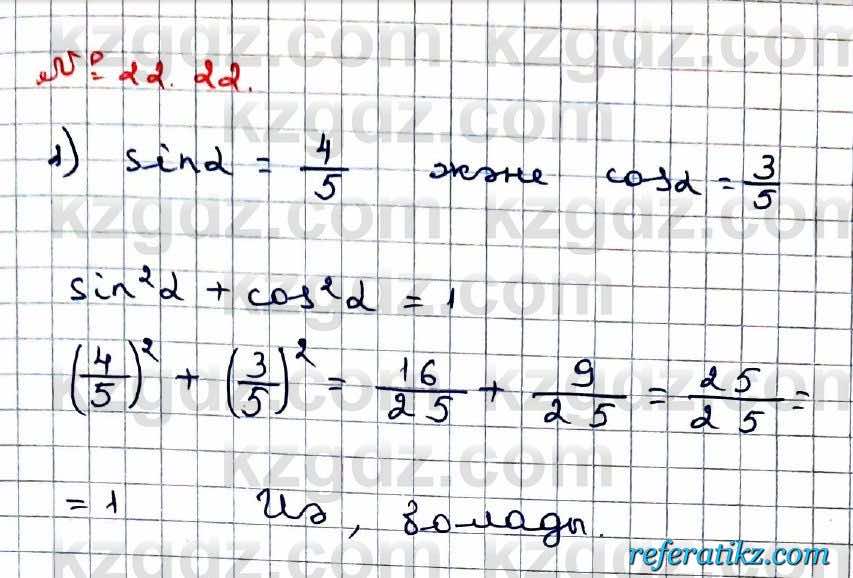 № 22. 22.
1) sinα = 4/5 және cosα = 3/5
sin²α + cos²α = 1
(4/5)² + (3/5)² = 16/25 + 9/25 = 25/25 =
= 1 Иә, болады.
kzgdz.com
referatikz.com